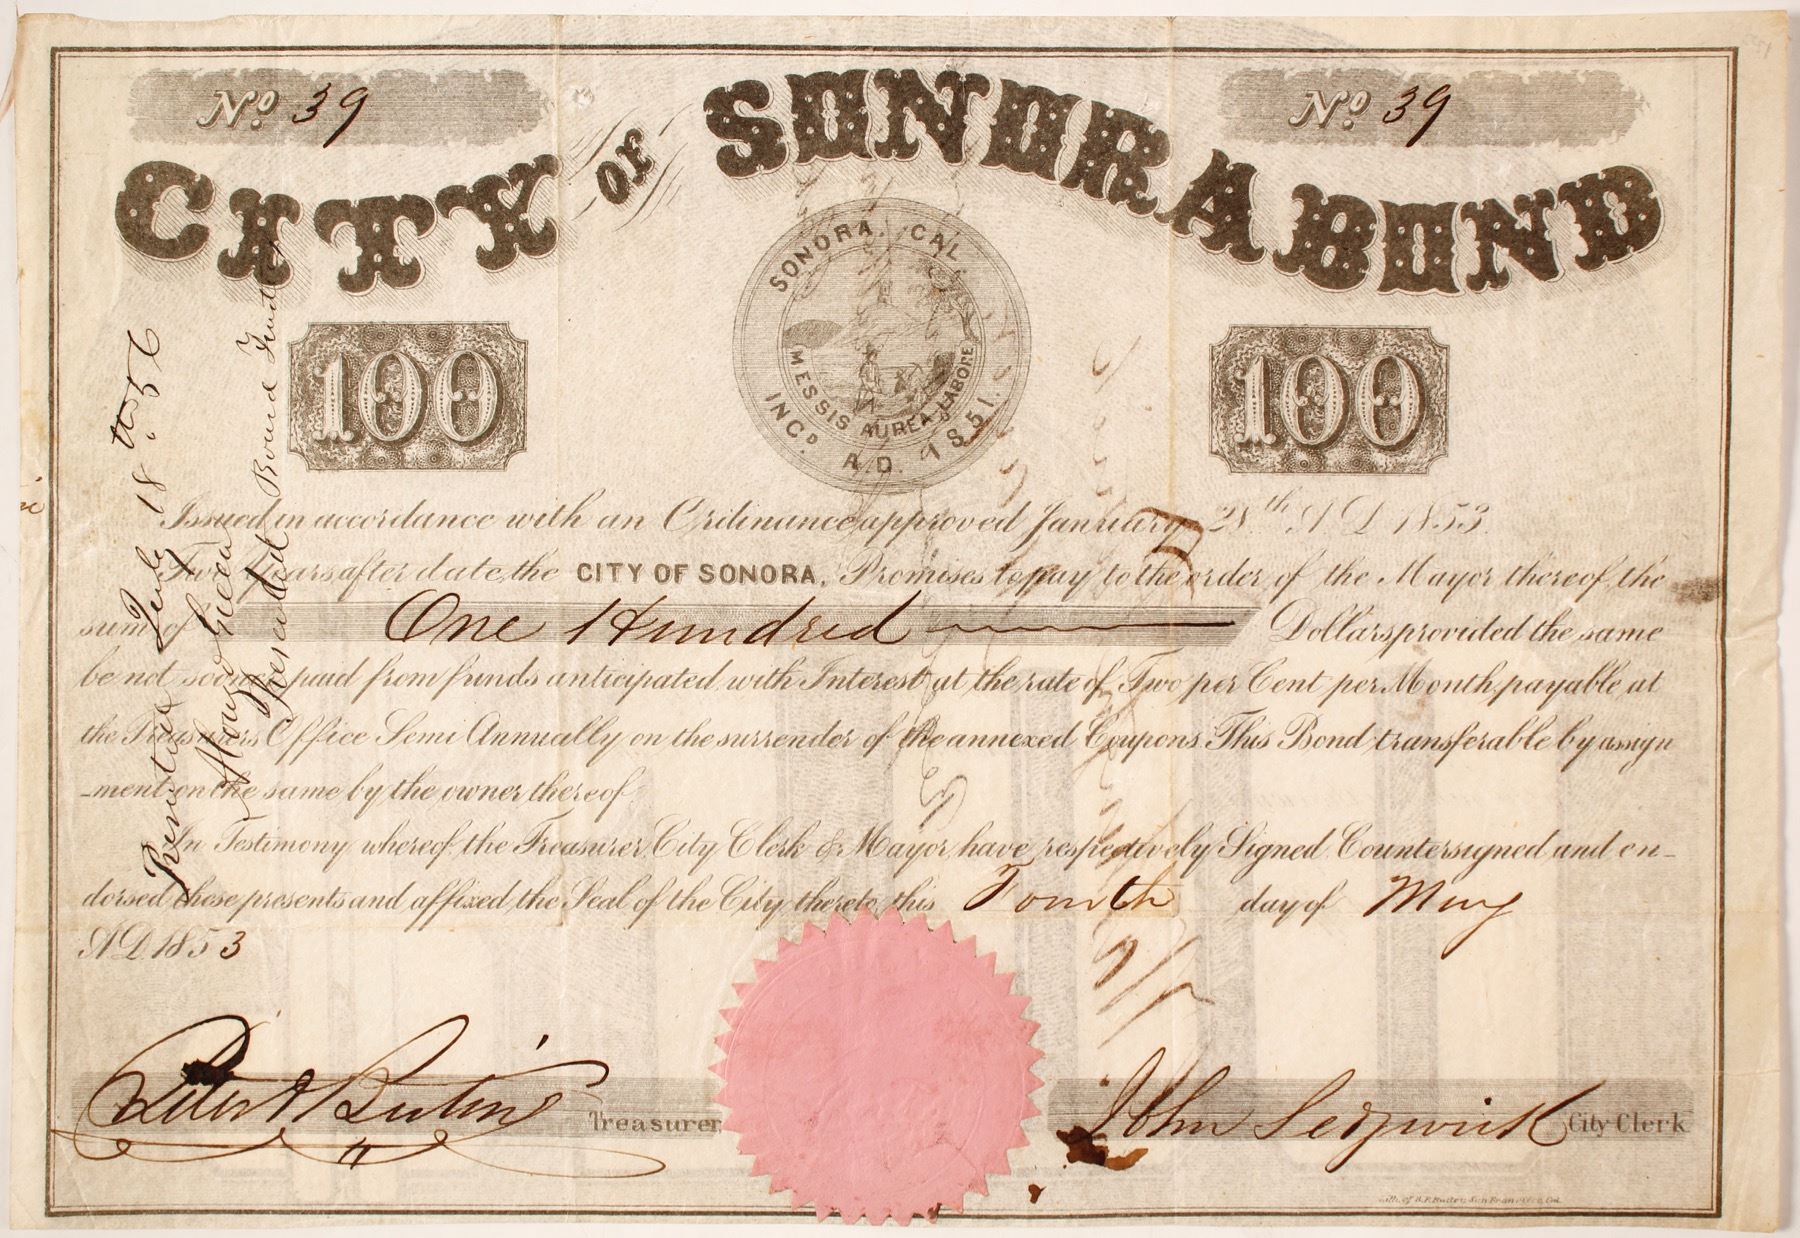 No. 39
No. 39
CITY OF SONORA BOND
SONORA, CAL.
MESSIS AUREA LABORE
INC.D A.D. 1851.
100
100
Issued in accordance with an Ordinance approved January 28th A D 1853.
Two Years after date, the CITY OF SONORA, Promises to pay to the order of the Mayor thereof, the
sum of One Hundred Dollars provided the same
be not sooner paid from funds anticipated, with Interest at the rate of Two per Cent per Month, payable at
the Treasurers Office Semi Annually on the surrender of the annexed Coupons. This Bond transferable by assign
-ment on the same by the owner thereof.
In Testimony whereof, the Treasurer, City Clerk & Mayor, have respectively Signed, Countersigned and en-
dorsed these presents and affixed the Seal of the City thereto, this Fourth day of May
A D. 1853
Treasurer
John Sedgwick City Clerk
Lith. of B.F. Butler, San Francisco, Cal.
Presented July 18th. 56
Presented Bond Fund